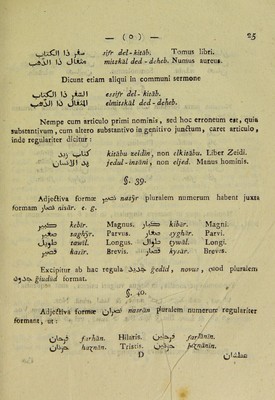 — ( o ) — 25
سفر ذا الكتاب sifr del-kitàb. Tomus libri.
مثقال ذا الذهب mitskàl ded-dzheb. Numus aureus.
Dicunt etiam aliqui in communi sermone
السفر ذا الكتاب essifr del-kitàb.
المثقال ذا الذهب elmitskàl ded-dzheb.
Nempe cum articulo primi nominis, sed hoc erroneum est, quia
substantivum, cum altero substantivo in genitivo junctum, caret articulo,
inde regulariter dicitur:
كتاب زيد kitàbu zeidin, non elkitàbu. Liber Zeidi.
يد الانسان jedul-insàni, non eljed. Manus hominis.
§. 39.
Adjectiva formæ نصير nasyr pluralem numerum habent juxta
formam نصار nisàr. e. g.
كبير kebir. Magnus. كبار kibàr. Magni.
صغير saghyr. Parvus. صغار syghàr. Parvi.
طويل tawil. Longus. طوال tywàl. Longi.
قصير kasir. Brevis. قصار kysàr. Breves.
Excipitur ab hac regula جديد gedid, novus, quod pluralem
جدود giudud format.
§. 40.
Adjectiva formæ نصران nasràn pluralem numerum regulariter
formant, ut:
فرحان farhàn. Hilaris. فرحانين farhànin.
حزنان haznàn. Tristis. حزنانين haznànin.
D عطشان